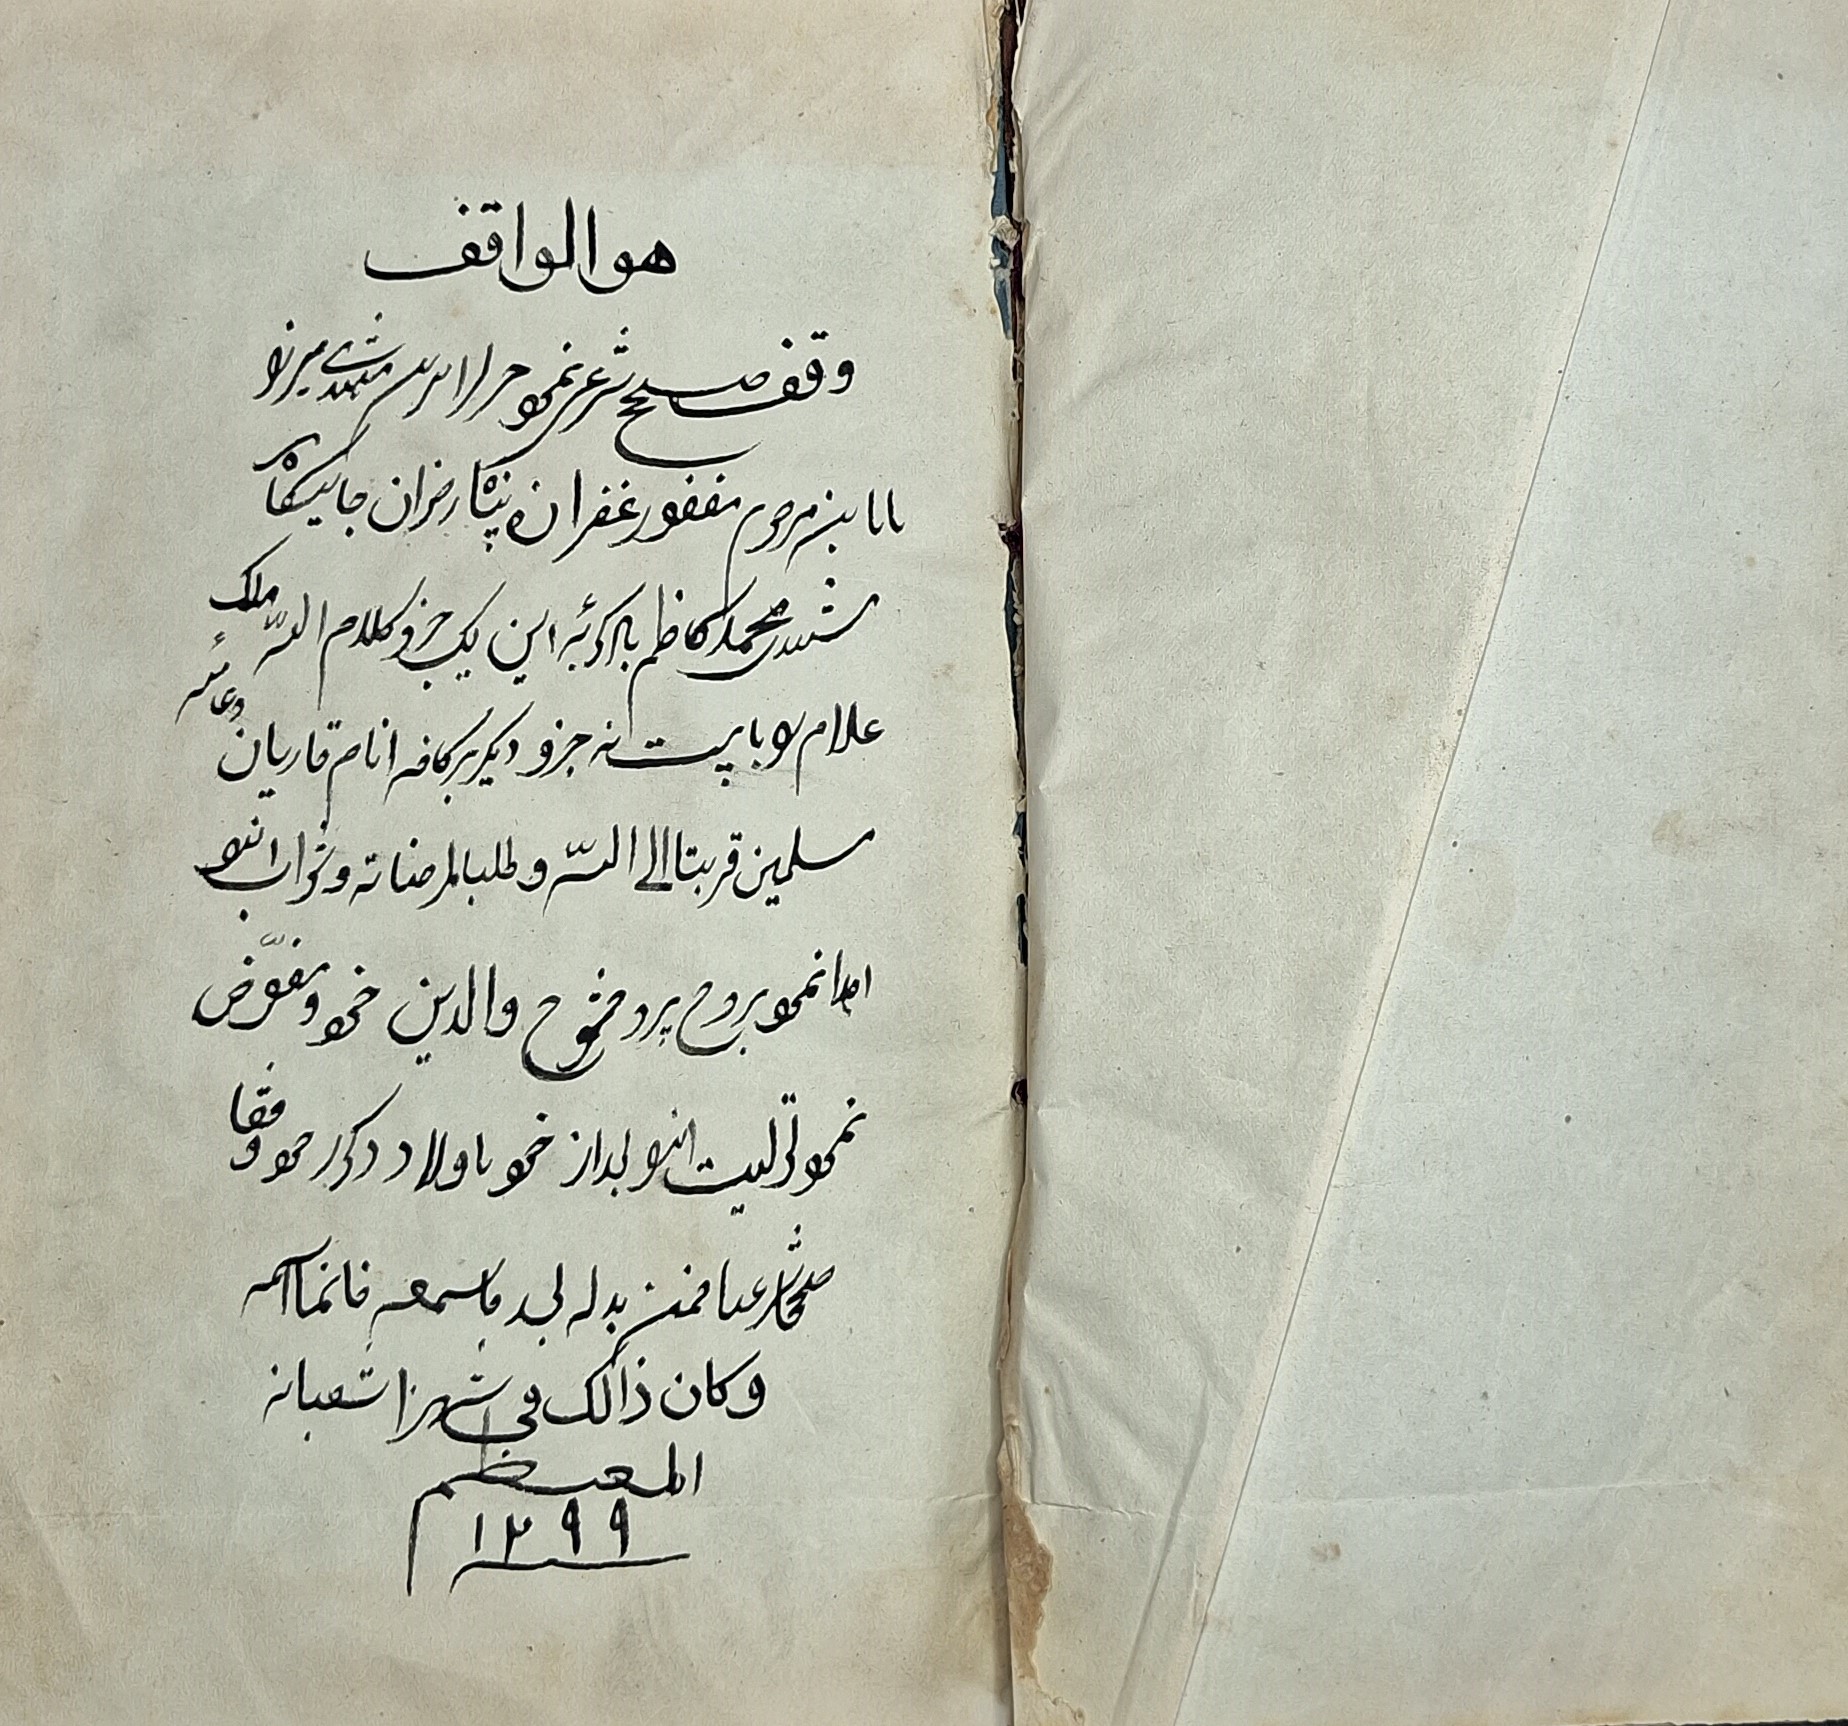 هو الواقف
وقف صحیح شرعی نمود مشهدی میرزا
بابا بن مرحوم مغفور غفران پناه رضوان جایگاه
مشهدی محمد کاظم این یک جزو کلام الله ملک
علام را با بیست نه جزو دیگر بر کافه انام قاریان و عامه
مسلمین قربتا الی الله و طلبا لمرضاته و ثواب انرا
اهدا نمود بروح پر فتوح والدین خود و مفوّض
نمود تولیت انرا بعد از خود باولاد ذکور خود وقفا
صحیحا شرعیا فمن بدله بعد ما سمعه فانما اثمه
و کان ذالک فی شهر شعبان
المعظم
سنه ۱۲۹۹